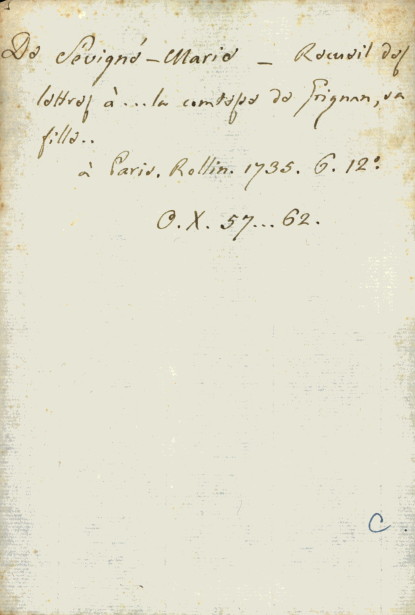 De Sévigné-Marie - Recueil des
lettres à ... la comtesse de Grignan, sa
fille..
à Paris. Rollin. 1735. 6. 12º
O. X. 57... 62.
C.